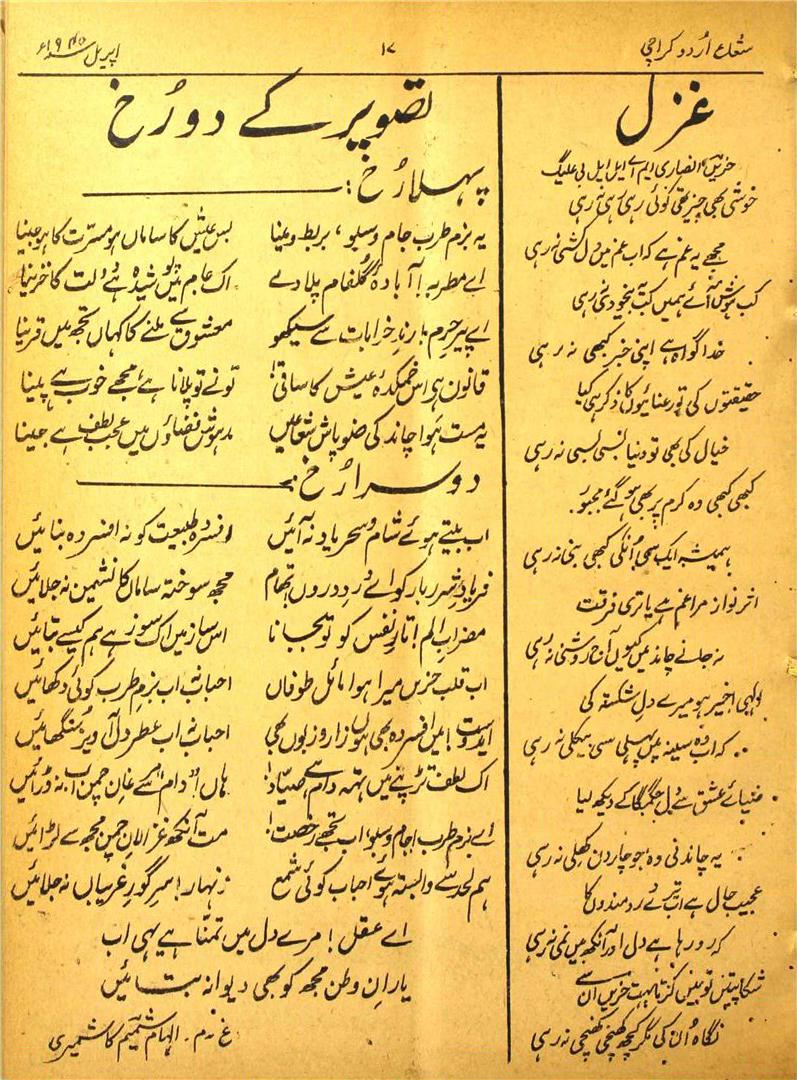 شعاع اردو کراچی
۱۷
اپریل
غزل
حزیں انصاری ایم اے ایل ایل بی علیگ
خوشی بھی چیز تھی کوئی رہی رہی نہ رہی
مجھے یہ غم ہے کہ اب غم میں دل کشی نہ رہی
کب ہوش آئے ہمیں کب یہ بیخودی نہ رہی
خدا گواہ ہے اپنی خبر کبھی نہ رہی
حقیقتوں کی تو رعنائیوں کا ذکر ہی کیا
خیال کی بھی تو دنیا بسی بسی نہ رہی
کبھی کبھی وہ کرم پر بھی ہو گئے مجبور
ہمیشہ ایک سی اُنکی کبھی بنی نہ رہی
اثر نواز مرا غم ہے یا تری فرقت
نہ جانے چاند میں کیوں آج روشنی نہ رہی
الہی خیر ہو میرے دلِ شکستہ کی
کہ اب وہ سینہ میں پہلی سی بیکلی نہ رہی
ضیائے عشق سے دل جگمگا کے دیکھ لیا
یہ چاندنی وہ ہے جو چار دن کھلی نہ رہی
عجیب حال ہے اب تیرے دردمندوں کا
کہ رو رہا ہے دل اور آنکھ میں نمی نہ رہی
شکایتیں تو نہیں کرنا بہت حزیں ان سے
نگاہ اُن کی مگر کچھ کھنچی کھنچی نہ رہی
تصویر کے دو رُخ
پہلا رُخ:
یہ بزم طرب جام و سبو، بربط و مینا بس عیش کا ساماں ہو مسرت کا ہو جینا
اے مطربہ! آ بادۂ گلفام پلا دے اک جام میں پوشیدہ ہے دولت کا خزینا
اے پیرِ حرم! رندِ خرابات سے سیکھو معشوق سے ملنے کا کہاں تجھ میں قرینا
قانون ہی اس خمکدۂ عیش کا ساقی! تونے تو پلانا ہے مجھے خوب ہے پینا
یہ مست ہوا چاند کی ضو پاش شعاعیں مدہوش فضاؤں میں عجب لطف ہے جینا
دوسرا رُخ:
اب بیتے ہوئے شام و سحر یاد نہ آئیں افسردہ طبیعت کو نہ افسردہ بنائیں
فریادِ شرر بار کو اے دردِ دروں تھام مجھ سوختہ ساماں کا نشیمن نہ جلائیں
مضرابِ الم! تارِ نفس کو تو بجانا اس ساز میں اک سوز ہے ہم کیسے بتائیں
اب قلبِ حزیں میرا ہوا مائل طوفاں احباب نہ اب بزمِ طرب کوئی دکھائیں
اے دوست! میں افسردہ بھی ہوں زار و زبوں بھی احباب نہ اب عطرِ دل آویز سنگھائیں
اک لطف تڑپنے میں ہے تہہ دام اے صیاد! ہاں اس دام سے مرغانِ چمن اب نہ ڈرائیں
اے بزمِ طرب! جام و سبو، اب تجھے رخصت! مت آنکھ غزالانِ چمن مجھ سے لڑائیں
ہم لحد سے وابستہ ہوئے احباب کوئی شمع زنہار! سرِ گورِ غریباں نہ جلائیں
اے عقل! مرے دل میں تمنا ہے یہی اب
یارانِ وطن مجھ کو بھی دیوانہ بنائیں
غ۔م۔ الہام شمیم کاشمیری